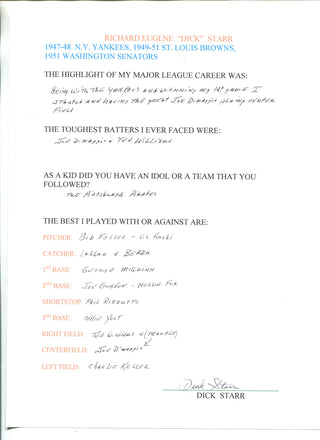 RICHARD EUGENE "DICK" STARR
1947-48 N.Y. YANKEES, 1949-51 ST. LOUIS BROWNS,
1951 WASHINGTON SENATORS
THE HIGHLIGHT OF MY MAJOR LEAGUE CAREER WAS:
Being with the Yankees and winning my 1st game I
started and having the great Joe Dimaggio playing center
field
THE TOUGHEST BATTERS I EVER FACED WERE:
Joe Dimaggio & Ted Williams
AS A KID DID YOU HAVE AN IDOL OR A TEAM THAT YOU
FOLLOWED?
The Pittsburgh Pirates
THE BEST I PLAYED WITH OR AGAINST ARE:
PITCHER: Bob Feller - Vic Raschi
CATCHER: & Berra
1ST BASE: McQuinn
2ND BASE: Joe Gordon - Nellie Fox
SHORTSTOP: Phil Rizzuto
3RD BASE: Eddie Yost
RIGHT FIELD: Ted Williams
CENTERFIELD: Joe Dimaggio
LEFT FIELD: Charlie Keller
Dick Starr
DICK STARR